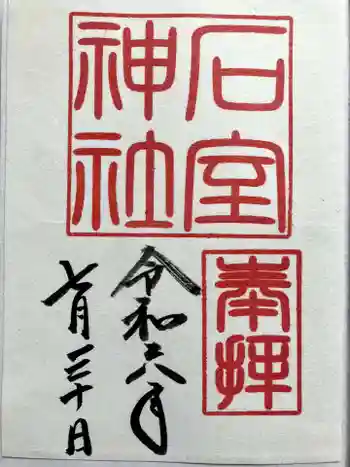 石室
神社
奉拝
令和六年
七月三十日